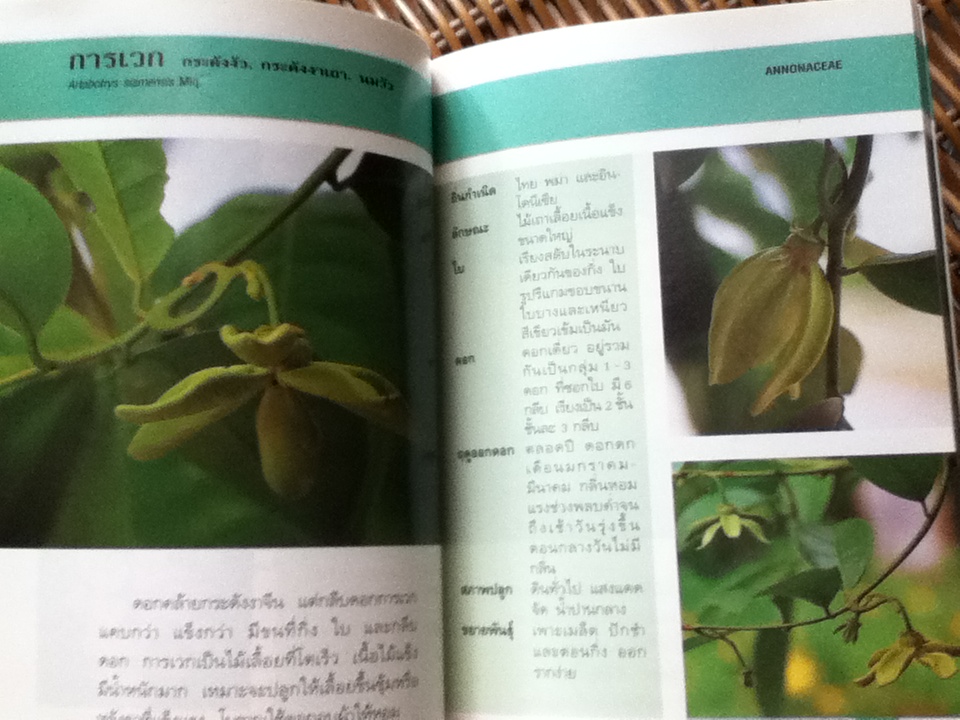 การเวก กระดังงัว, กระดังงาเถา, นมวัว
Artabotrys siamensis Miq.
ดอกคล้ายกระดังงาจีน แต่กลีบดอกการเวก
แคบกว่า แข็งกว่า มีขนที่กิ่ง ใบ และกลีบ
ดอก การเวกเป็นไม้เลื้อยที่โตเร็ว เนื้อไม้แข็ง
มีน้ำหนักมาก เหมาะจะปลูกให้เลื้อยขึ้นซุ้มหรือ
ANNONACEAE
ถิ่นกำเนิด ไทย พม่า และอิน-
โดนีเซีย
ลักษณะ ไม้เถาเลื้อยเนื้อแข็ง
ขนาดใหญ่
ใบ เรียงสลับในระนาบ
เดียวกันของกิ่ง ใบ
รูปรีแกมขอบขนาน
ใบบางและเหนียว
สีเขียวเข้มเป็นมัน
ดอก ดอกเดี่ยว อยู่รวม
กันเป็นกลุ่ม 1 - 3
ดอก ที่ซอกใบ มี 6
กลีบ เรียงเป็น 2 ชั้น
ชั้นละ 3 กลีบ
ฤดูออกดอก ตลอดปี ดอกดก
เดือนมกราคม-
มีนาคม กลิ่นหอม
แรงช่วงพลบค่ำจน
ถึงเช้าวันรุ่งขึ้น
ตอนกลางวันไม่มี
กลิ่น
สภาพปลูก ดินทั่วไป แสงแดด
จัด น้ำปานกลาง
ขยายพันธุ์ เพาะเมล็ด ปักชำ
และตอนกิ่ง ออก
รากง่าย